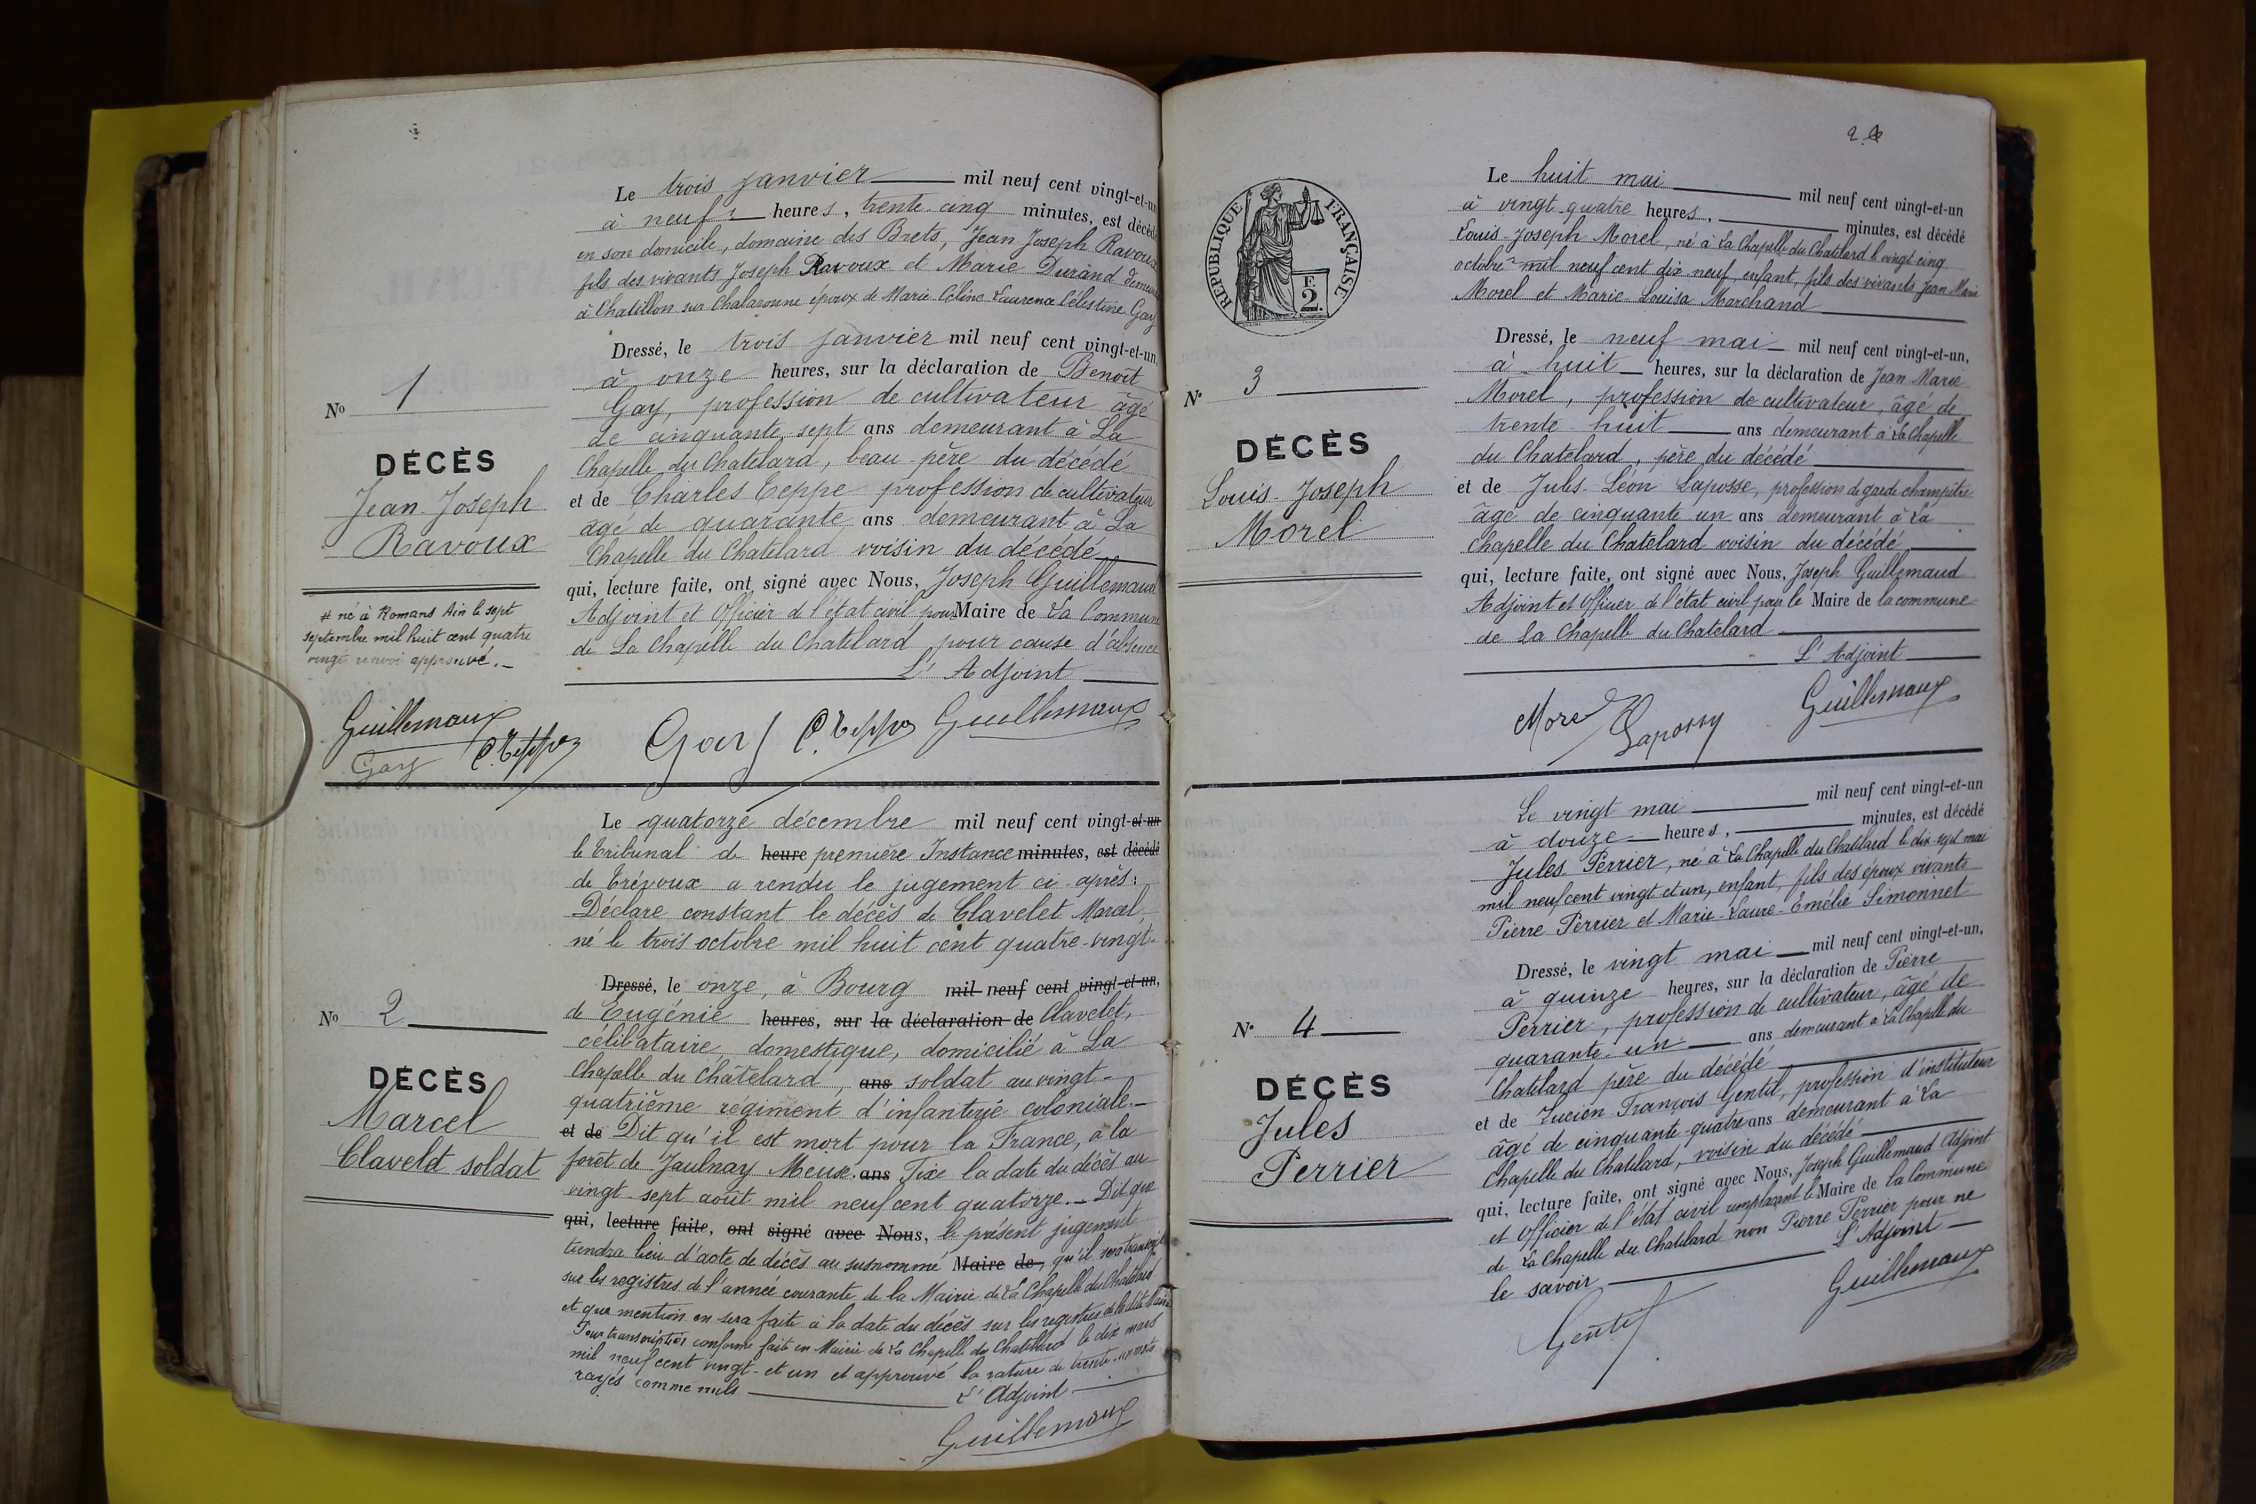 Le trois janvier mil neuf cent vingt-et-un
à neuf heures, trente-cinq minutes, est décédé
en son domicile, domaine des Brets, Jean Joseph Ravoux
fils des vivants Joseph Ravoux et Marie Durand
à Chatillon sur Chalaronne époux de Marie Celine Laurence Célestine Gay
Dressé, le trois janvier mil neuf cent vingt-et-un,
à onze heures, sur la déclaration de Benoît
Gay, profession de cultivateur âgé
de cinquante-sept ans demeurant à La
Chapelle du Chatelard, beau-père du décédé
et de Charles Teppe profession de cultivateur
âgé de quarante ans demeurant à La
Chapelle du Chatelard voisin du décédé
qui, lecture faite, ont signé avec Nous, Joseph Guillemaud
Adjoint et Officier de l'état civil pour Maire de La Commune
de La Chapelle du Chatelard pour cause d'absence
L'Adjoint
No 1
DÉCÈS
Jean-Joseph
Ravoux
# né à Romans Ain le sept
septembre mil huit cent quatre
vingt renvoi approuvé.
Guillemaud
Gay C. Teppe
Gay C. Teppe Guillemaud
Le quatorze décembre mil neuf cent vingt-et-un
le Tribunal de heure première Instance minutes, est décédé
de Trévoux a rendu le jugement ci-après:
Déclare constant le décès de Clavelet Marcel,
né le trois octobre mil huit cent quatre-vingt-
Dressé, le onze, à Bourg mil neuf cent vingt-et-un,
de Eugénie heures, sur la déclaration de Clavelet,
célibataire, domestique, domicilié à La
Chapelle du Châtelard, ans soldat au vingt-
quatrième régiment d'infanterie coloniale.
et de Dit qu'il est mort pour la France, à la
forêt de Jaulnay Meuse. ans Fixe la date du décès au
vingt-sept août mil neuf cent quatorze. Dit que
qui, lecture faite, ont signé avec Nous, le présent jugement
tiendra lieu d'acte de décès au susnommé Maire de, qu'il sera transcrit
sur les registres de l'année courante de la Mairie de La Chapelle du Chatelard
et que mention en sera faite à la date du décès sur les registres de ladite Mairie
Pour transcription conforme fait en Mairie de La Chapelle du Chatelard le dix mars
mil neuf cent vingt-et un et approuvé la rature de trente-un mots
rayés comme nuls
L'Adjoint
Guillemaud
No 2
DÉCÈS
Marcel
Clavelet soldat
RÉPUBLIQUE FRANÇAISE
E
2.
Le huit mai mil neuf cent vingt-et-un
à vingt-quatre heures, minutes, est décédé
Louis-Joseph Morel, né à La Chapelle du Chatelard le vingt-cinq
octobre mil neuf cent dix neuf, enfant, fils des vivants Jean Marie
Morel et Marie Louisa Marchand
Dressé, le neuf mai mil neuf cent vingt-et-un,
à huit heures, sur la déclaration de Jean Marie
Morel, profession de cultivateur, âgé de
trente-huit ans demeurant à La Chapelle
du Chatelard, père du décédé
et de Jules-Léon Laposse, profession de garde champêtre
âgé de cinquante un ans demeurant à La
Chapelle du Chatelard voisin du décédé
qui, lecture faite, ont signé avec Nous, Joseph Guillemaud
Adjoint et Officier de l'état civil pour le Maire de la commune
de La Chapelle du Chatelard
L'Adjoint
Morel Laposse Guillemaud
N° 3
DÉCÈS
Louis-Joseph
Morel
Le vingt mai mil neuf cent vingt-et-un
à douze heures, minutes, est décédé
Jules Perrier, né à La Chapelle du Chatelard le dix-sept mai
mil neuf cent vingt et un, enfant, fils des époux vivants
Pierre Perrier et Marie-Laure-Emélie Simonnet
Dressé, le vingt mai mil neuf cent vingt-et-un,
à quinze heures, sur la déclaration de Pierre
Perrier, profession de cultivateur, âgé de
quarante-un ans demeurant à La Chapelle du
Chatelard père du décédé
et de Lucien François Gentil, profession d'instituteur
âgé de cinquante-quatre ans demeurant à La
Chapelle du Chatelard, voisin du décédé
qui, lecture faite, ont signé avec Nous, Joseph Guillemaud Adjoint
et Officier de l'état civil remplaçant le Maire de la Commune
de La Chapelle du Chatelard non Pierre Perrier pour ne
le savoir
L'Adjoint
Gentil Guillemaud
N° 4
DÉCÈS
Jules
Perrier